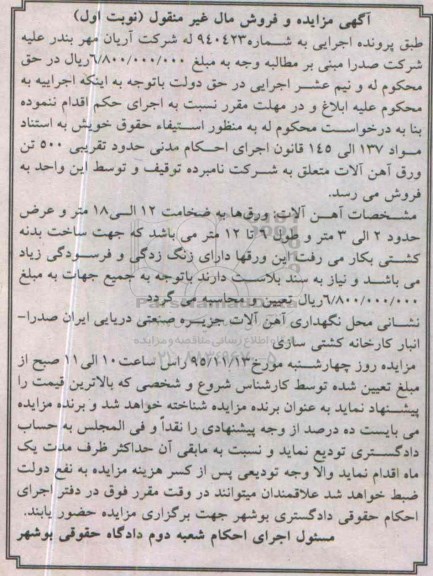 آگهی مزایده و فروش مال غیر منقول (نوبت اول)
طبق پرونده اجرایی به شماره۹۴۰۴۲۳ له شرکت آریان مهر بندر علیه
شرکت صدرا مبنی بر مطالبه وجه به مبلغ ۶/۸۰۰/۰۰۰/۰۰۰ریال در حق
محکوم له و نیم عشر اجرایی در حق دولت باتوجه به اینکه اجراییه به
محکوم علیه ابلاغ و در مهلت مقرر نسبت به اجرای حکم اقدام ننموده
بنا به درخواست محکوم له به منظور استیفاء حقوق خویش به استناد
مواد ۱۳۷ الی ۱۴۵ قانون اجرای احکام مدنی حدود تقریبی ۵۰۰ تن
ورق آهن آلات متعلق به شرکت نامبرده توقیف و توسط این واحد به
فروش می رسد.
مشخصات آهن آلات: ورق‌ها به ضخامت ۱۲ الی۱۸ متر و عرض
حدود ۲ الی ۳ متر و طول ۹ تا ۱۲ متر می باشد که جهت ساخت بدنه
کشتی بکار می رفت این ورقها دارای زنگ زدگی و فرسودگی زیاد
می باشد و نیاز به سند بلاست دارند باتوجه به جمیع جهات به مبلغ
۶/۸۰۰/۰۰۰/۰۰۰ریال تعیین و محاسبه می گردد
نشانی محل نگهداری آهن آلات جزیره صنعتی دریایی ایران صدرا-
انبار کارخانه کشتی سازی
مزایده روز چهارشنبه مورخ۹۵/۱۱/۱۳ راس ساعت۱۰ الی ۱۱ صبح از
مبلغ تعیین شده توسط کارشناس شروع و شخصی که بالاترین قیمت را
پیشنهاد نماید به عنوان برنده مزایده شناخته خواهد شد و برنده مزایده
می بایست ده درصد از وجه پیشنهادی را نقداً و فی المجلس به حساب
دادگستری تودیع نماید و نسبت به مابقی آن حداکثر ظرف مدت یک
ماه اقدام نماید والا وجه تودیعی پس از کسر هزینه مزایده به نفع دولت
ضبط خواهد شد علاقمندان میتوانند در وقت مقرر فوق در دفتر اجرای
احکام حقوقی دادگستری بوشهر جهت برگزاری مزایده حضور یابند.
مسئول اجرای احکام شعبه دوم دادگاه حقوقی بوشهر